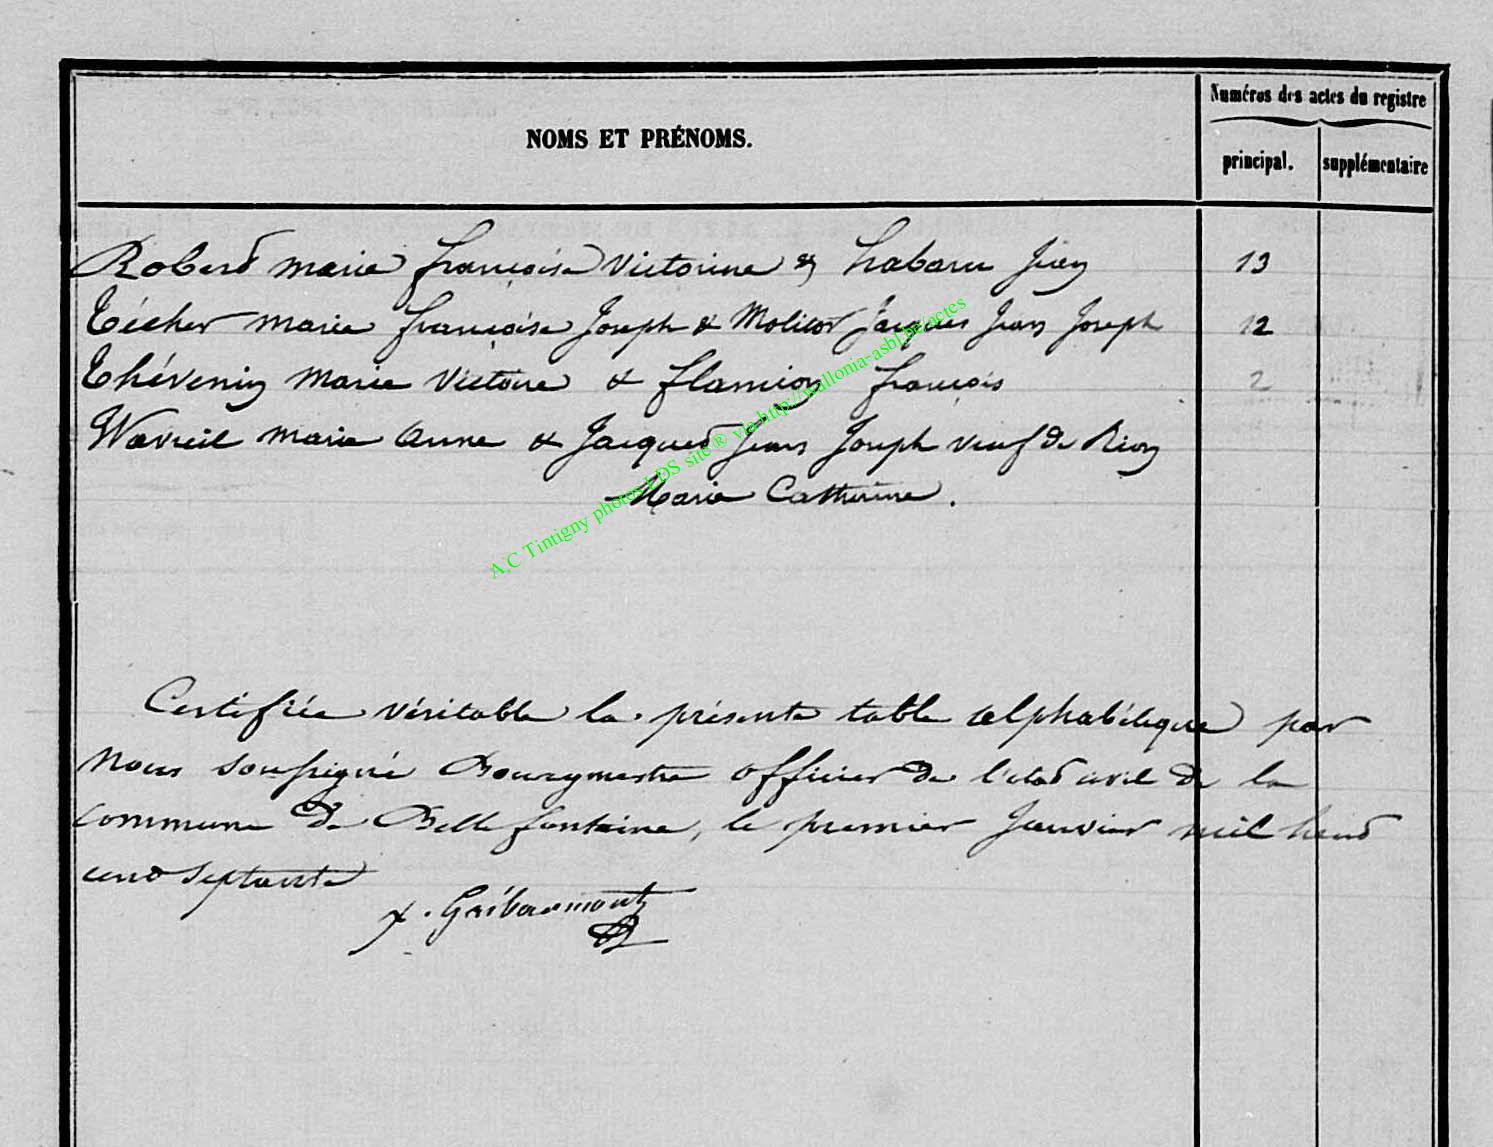 NOMS ET PRÉNOMS.
Numéros des actes du registre
principal.
supplémentaire
Roberd marie françoise Victorine & habaru Jean 13
Técher marie françoise Joseph & Molitor Jacques Jean Joseph 12
Thévenin Marie Victoire & flamion françois 2
Wavreil Marie Anne & Jacques Jean Joseph veuf de Rion
Marie Catherine.
Certifiée véritable la présente table alphabétique par
Nous soussigné Bourgmestre officier de l'etat civil de la
commune de Bellefontaine, le premier Janvier mil huit
cent septante
Gribaumont
A.C Tintigny photos LDS site ® via http://wallonia-asbl.be/actes